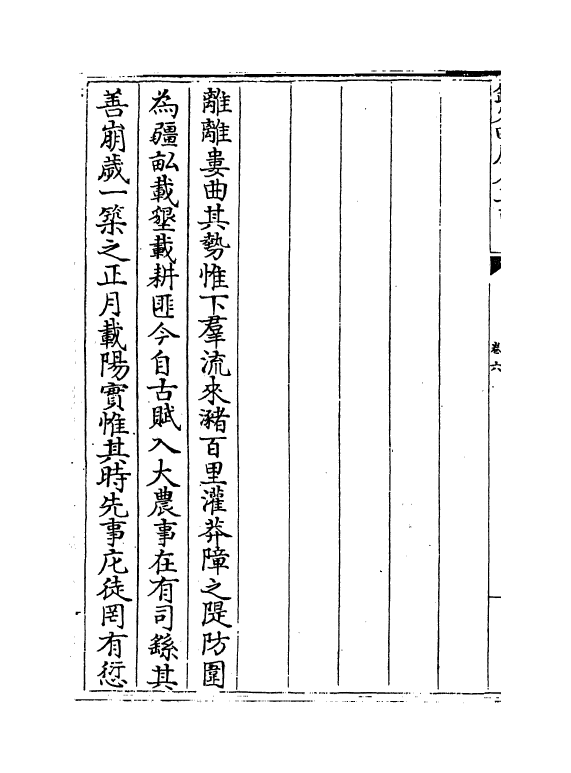 卷六
離離婁曲其勢惟下羣流來瀦百里灌莽障之隄防圍
為疆畝載墾載耕匪今自古賦入大農事在有司繇其
善崩歲一築之正月載陽實惟其時先事庀徒罔有愆